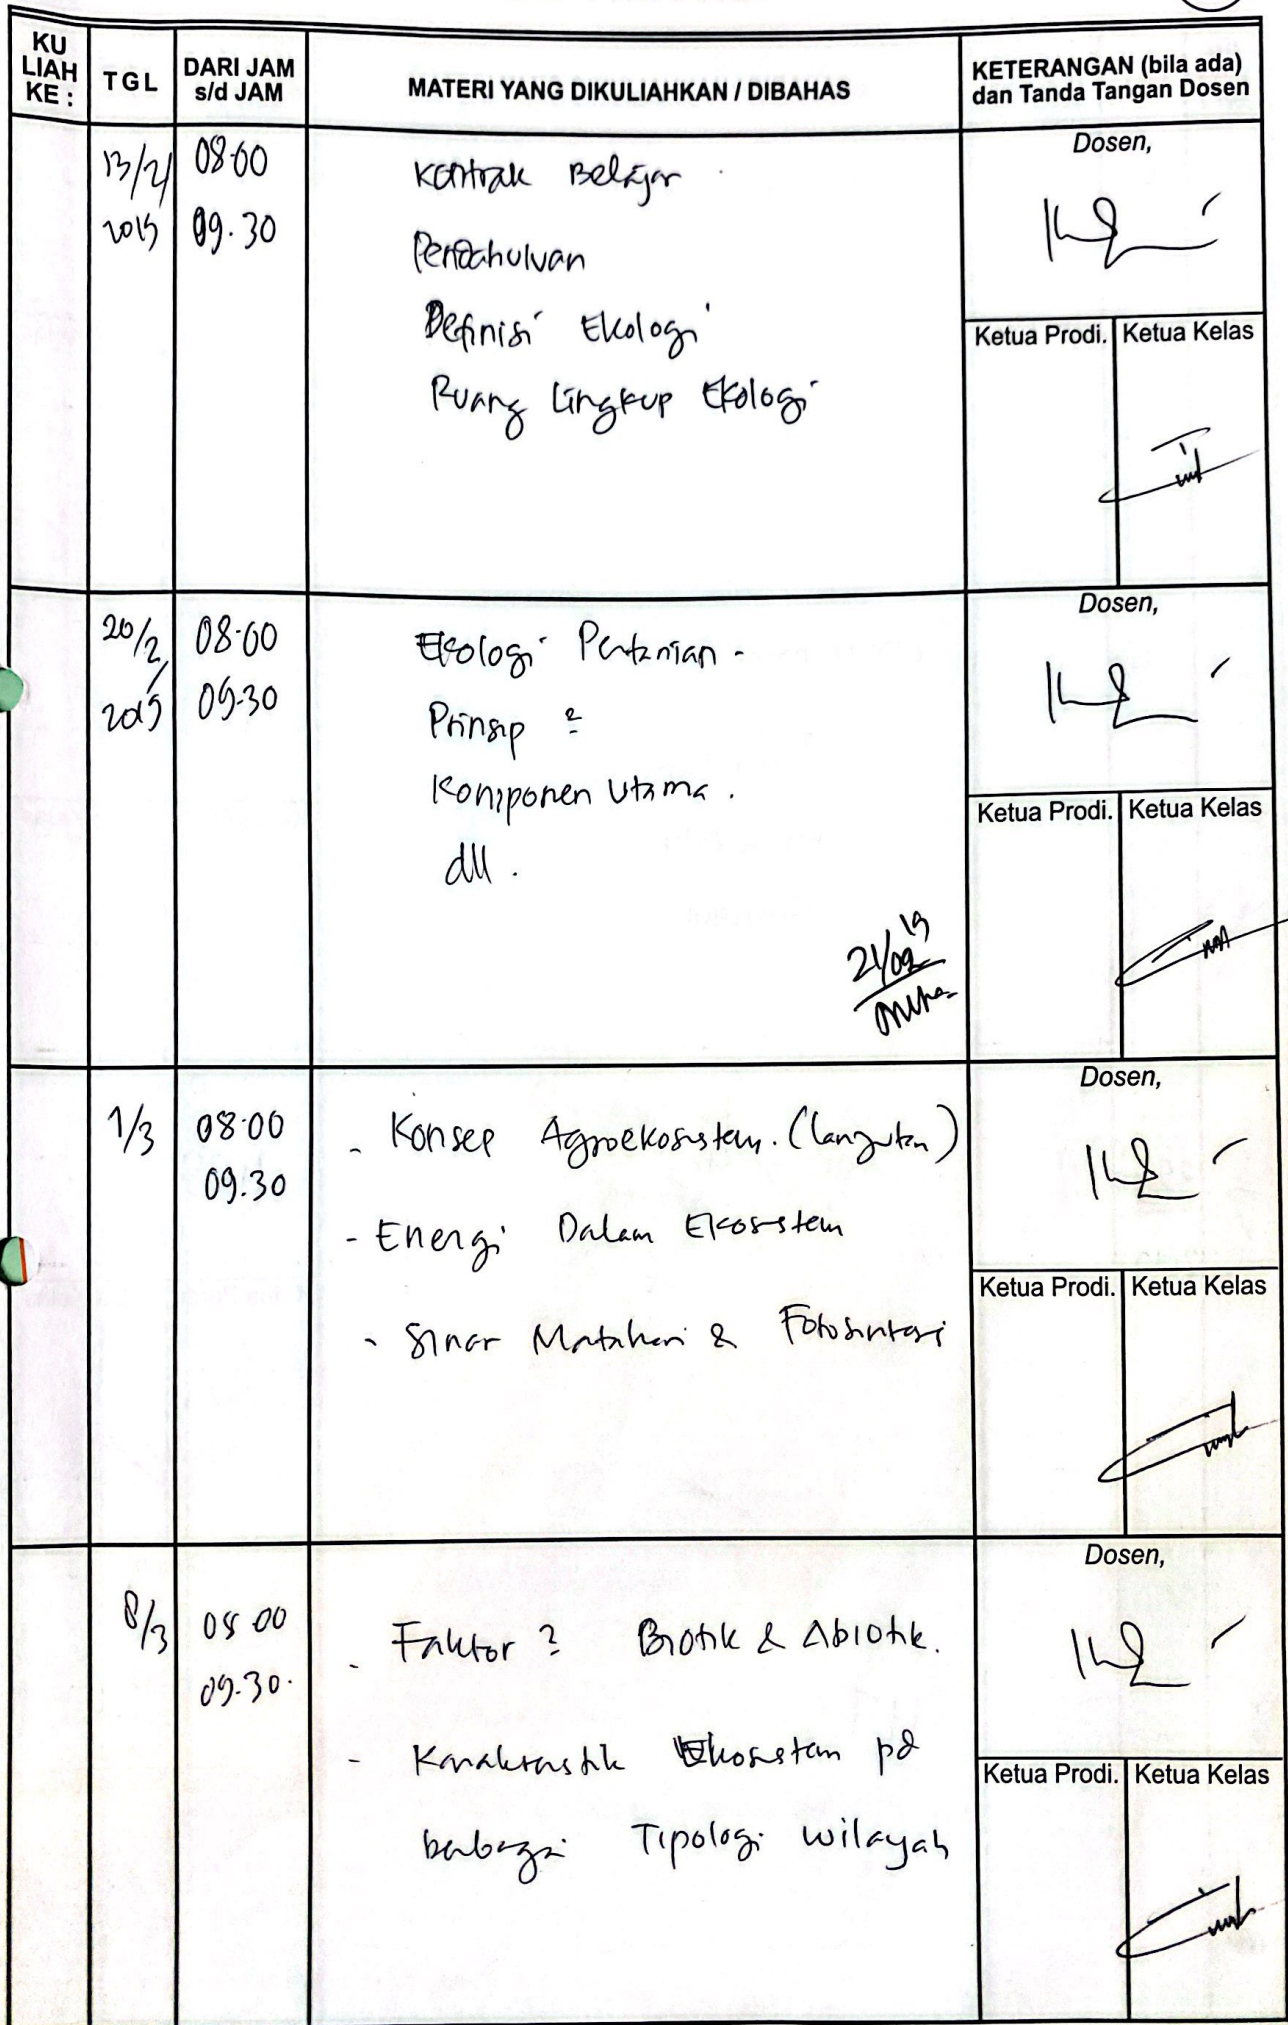 KU
LIAH
KE :
TGL
DARI JAM
s/d JAM
MATERI YANG DIKULIAHKAN / DIBAHAS
KETERANGAN (bila ada)
dan Tanda Tangan Dosen
13/2/
2019
08.00
09.30
Kontrak Belajar
Pendahuluan
Definisi Ekologi
Ruang Lingkup Ekologi
Dosen,
Ketua Prodi.
Ketua Kelas
20/2/
2019
08.00
09.30
Ekologi Pertanian -
Prinsip 2
Komponen Utama .
dll .
21/02 19
Dosen,
Ketua Prodi.
Ketua Kelas
1/3
08.00
09.30
- Konsep Agroekosistem. (lanjutan)
- Energi Dalam Ekosistem
- Sinar Matahari & Fotosintesi
Dosen,
Ketua Prodi.
Ketua Kelas
8/3
08 00
09.30.
- Faktor 2 Biotik & Abiotik.
- Karakteristik Ekosistem pd
berbagai Tipologi wilayah
Dosen,
Ketua Prodi.
Ketua Kelas